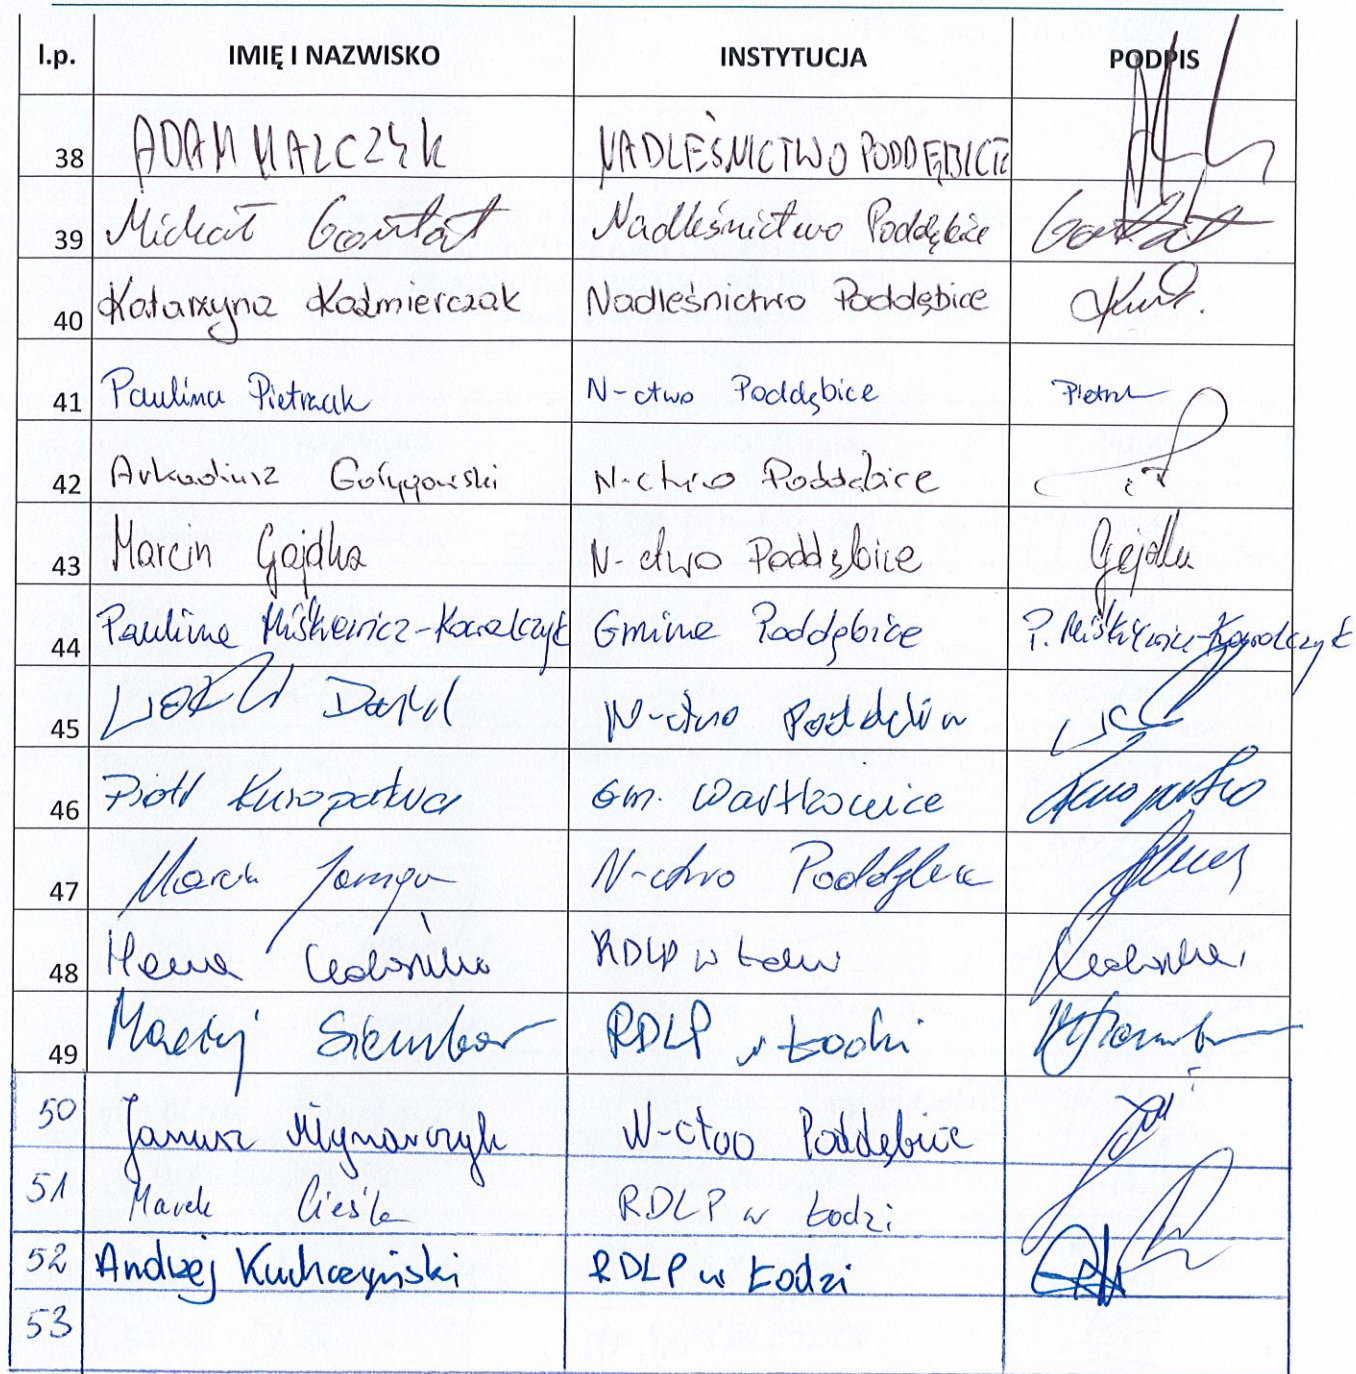 l.p. IMIĘ I NAZWISKO INSTYTUCJA PODPIS
38 ADAM MALCZYK NADLEŚNICTWO PODDĘBICE
39 Michał Gortat Nadleśnictwo Poddębice Gortat
40 Katarzyna Kaźmierczak Nadleśnictwo Poddębice
41 Paulina Pietrzak N-ctwo Poddębice
42 Arkadiusz N-ctwo Poddębice
43 Marcin Gajdka N-ctwo Poddębice Gajdka
44 Paulina Miśkiewicz-Kowalczyk Gmina Poddębice P. Miśkiewicz-Kowalczyk
45 N-ctwo
46 Piotr Kuropatwa Gm. Wartkowice
47 Marcin N-ctwo Poddębice
48 RDLP w Łodzi
49 Maciej RDLP w Łodzi
50 Janusz Młynarczyk N-ctwo Poddębice
51 Marek Cieśla RDLP w Łodzi
52 Andrzej Kuchczyński RDLP w Łodzi
53